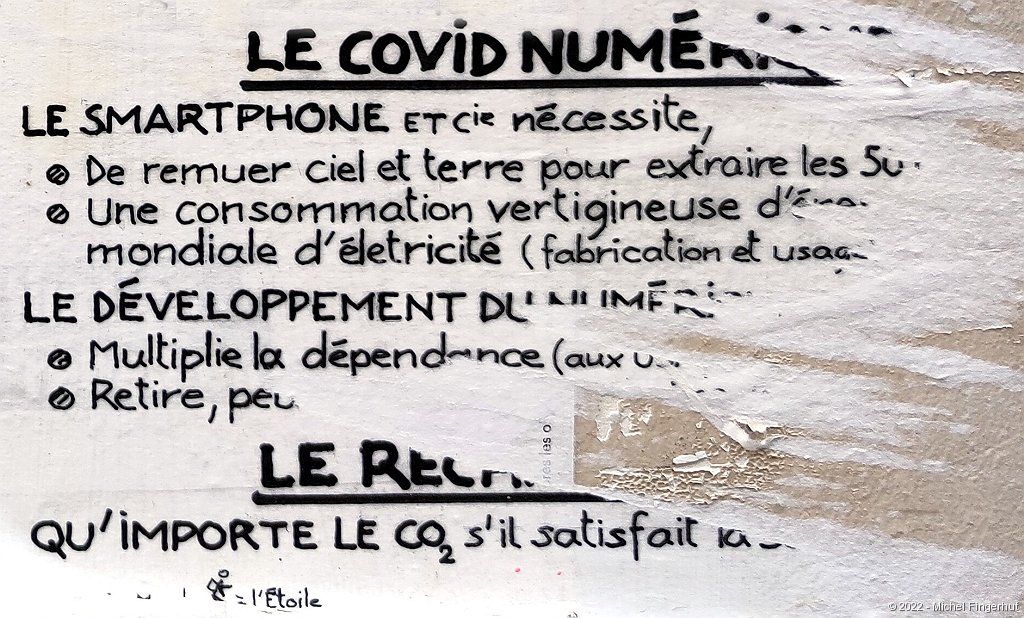 LE COVID NUMÉRI
LE SMARTPHONE ET Cie nécessite,
De remuer ciel et terre pour extraire les
Une consommation vertigineuse
mondiale d'életricité (fabrication et usag
LE DÉVELOPPEMENT DU NUMÉRI
Multiplie la dépendance (aux
Retire, peu
LE
QU'IMPORTE LE CO₂ s'il satisfait la
= l'Étoile
© 2022 - Michel Fingerhut